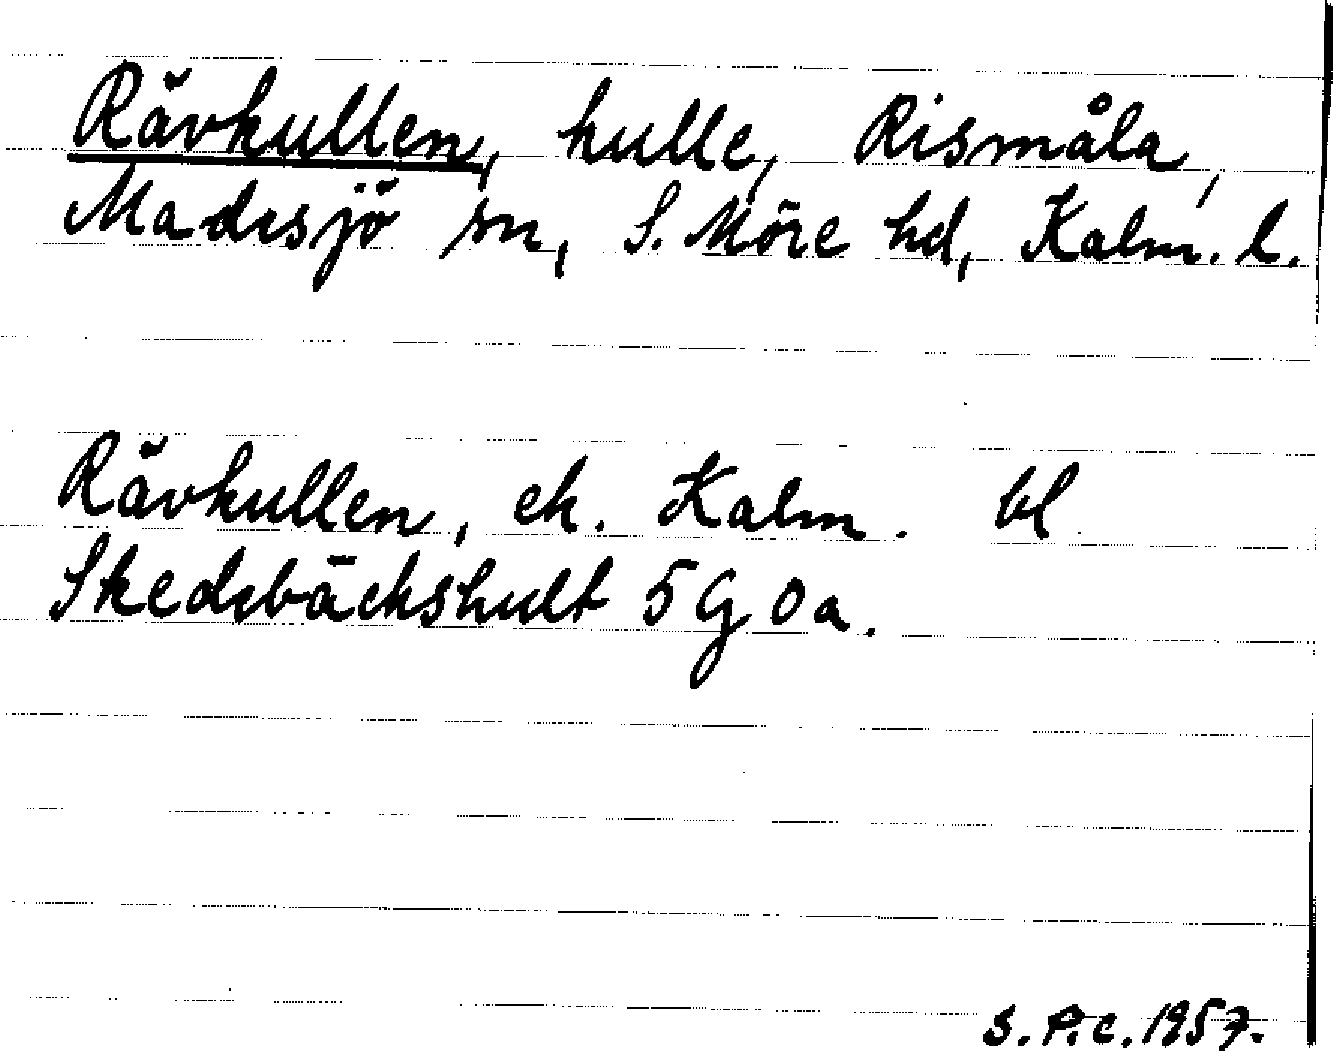 Rävkullen, kulle, Rismåla,
Madesjö sn, S. Möre hd, Kalm. l.
Rävkullen, ek. Kalm. bl
Skedebäckshult 5 G 0 a.
S. P. C. 1957.